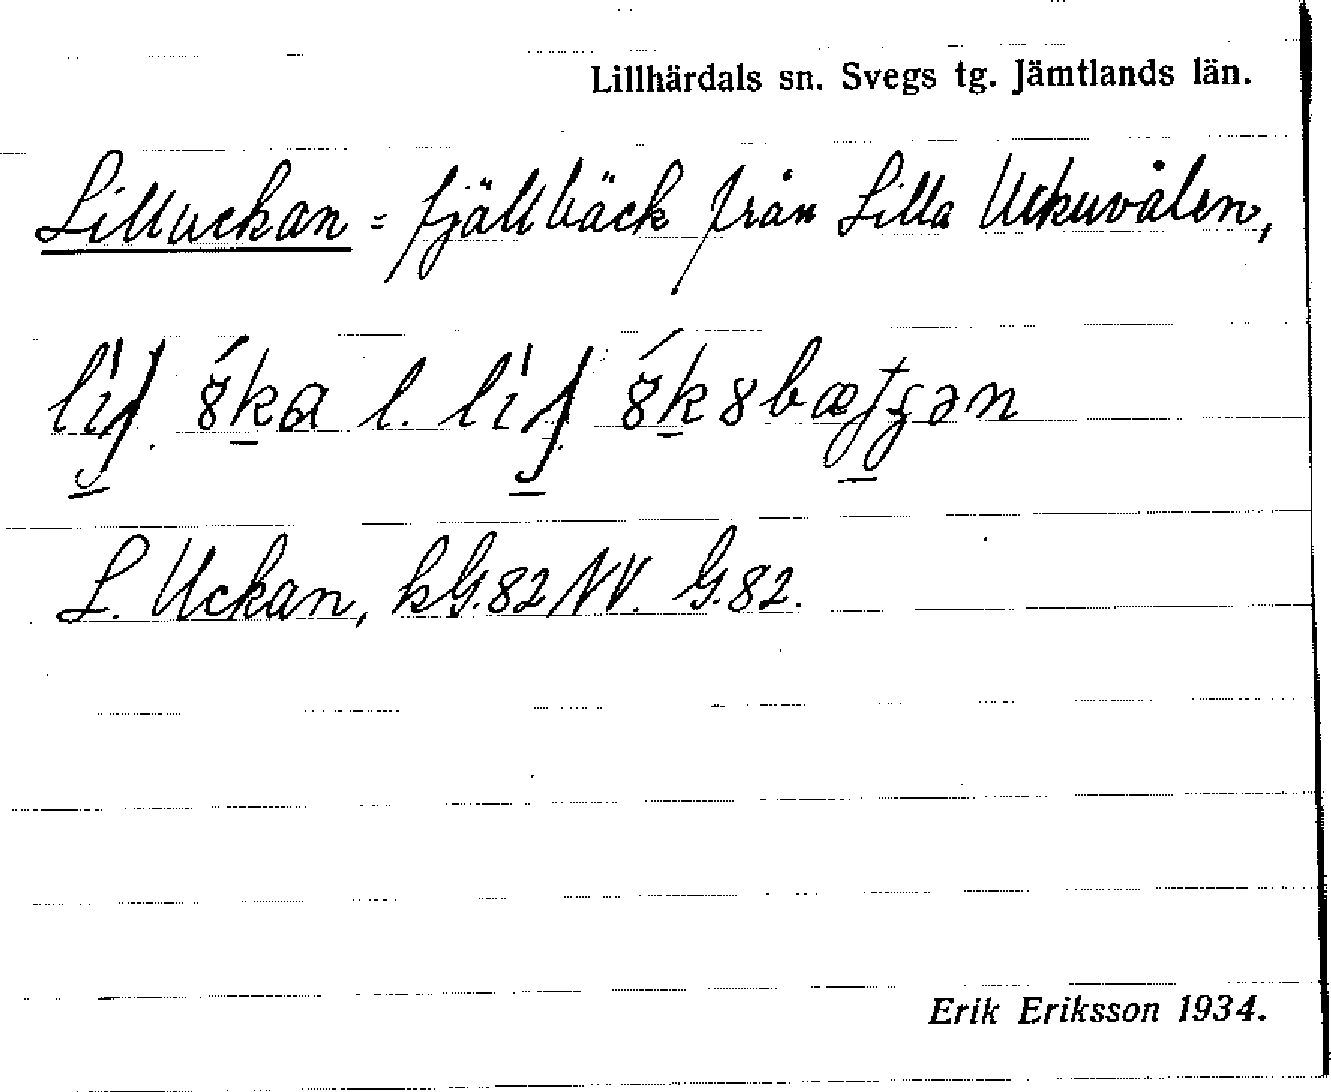 Lillhärdals sn. Svegs tg. Jämtlands län.
Lilluckan = fjällbäck från Lilla Uckuvålen,
l. 
L. Uckan, kG.82 NV. G.82.
Erik Eriksson 1934.